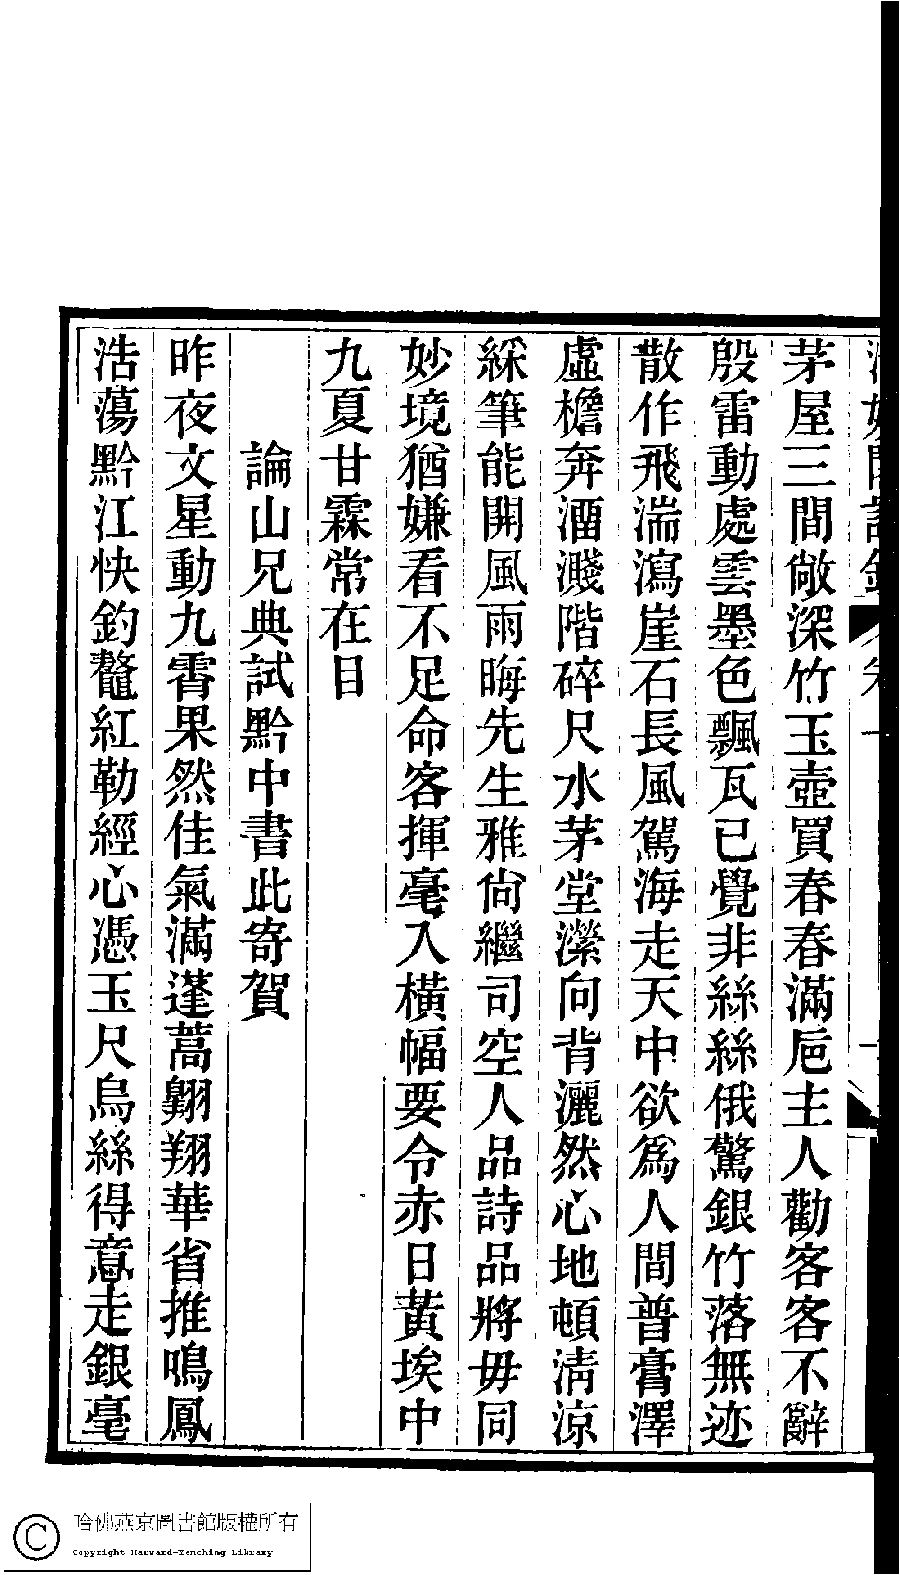 茅屋三間敞深竹玉壺買春春滿巵主人勸客客不辭
殷雷動處雲墨色飄瓦已覺非絲絲俄驚銀竹落無迹
散作飛湍瀉崖石長風駕海走天中欲爲人間普膏澤
虛檐奔洒濺階碎尺水茅堂瀠向背灑然心地頓淸涼
綵筆能開風雨晦先生雅尙繼司空人品詩品將毋同
妙境猶嫌看不足命客揮毫入橫幅要令赤日黃埃中
九夏甘霖常在目
論山兄典試黔中書此寄賀
昨夜文星動九霄果然佳氣滿蓬蒿翺翔華省推鳴鳳
浩蕩黔江快釣鼇紅勒經心憑玉尺烏絲得意走銀毫
哈佛燕京圖書館版權所有
Copyright Harvard-Yenching Library